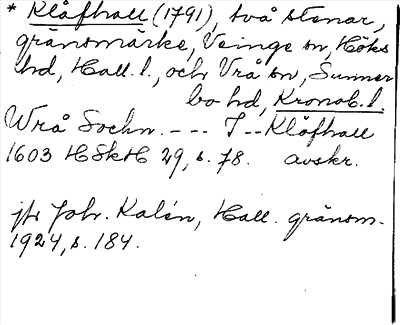 * Klåfhall (1791), två stenar,
gränsmärke, Veinge sn, Höks
hd, Hall. l., och Vrå sn, Sunner
bo hd, Kronob. l.
Wrå Sochn. --- I -- Klåfhall
1603 HSkH 29, s. 78. avskr.
jfr Joh. Kalén, Hall. gränsm.
1924, s. 184.